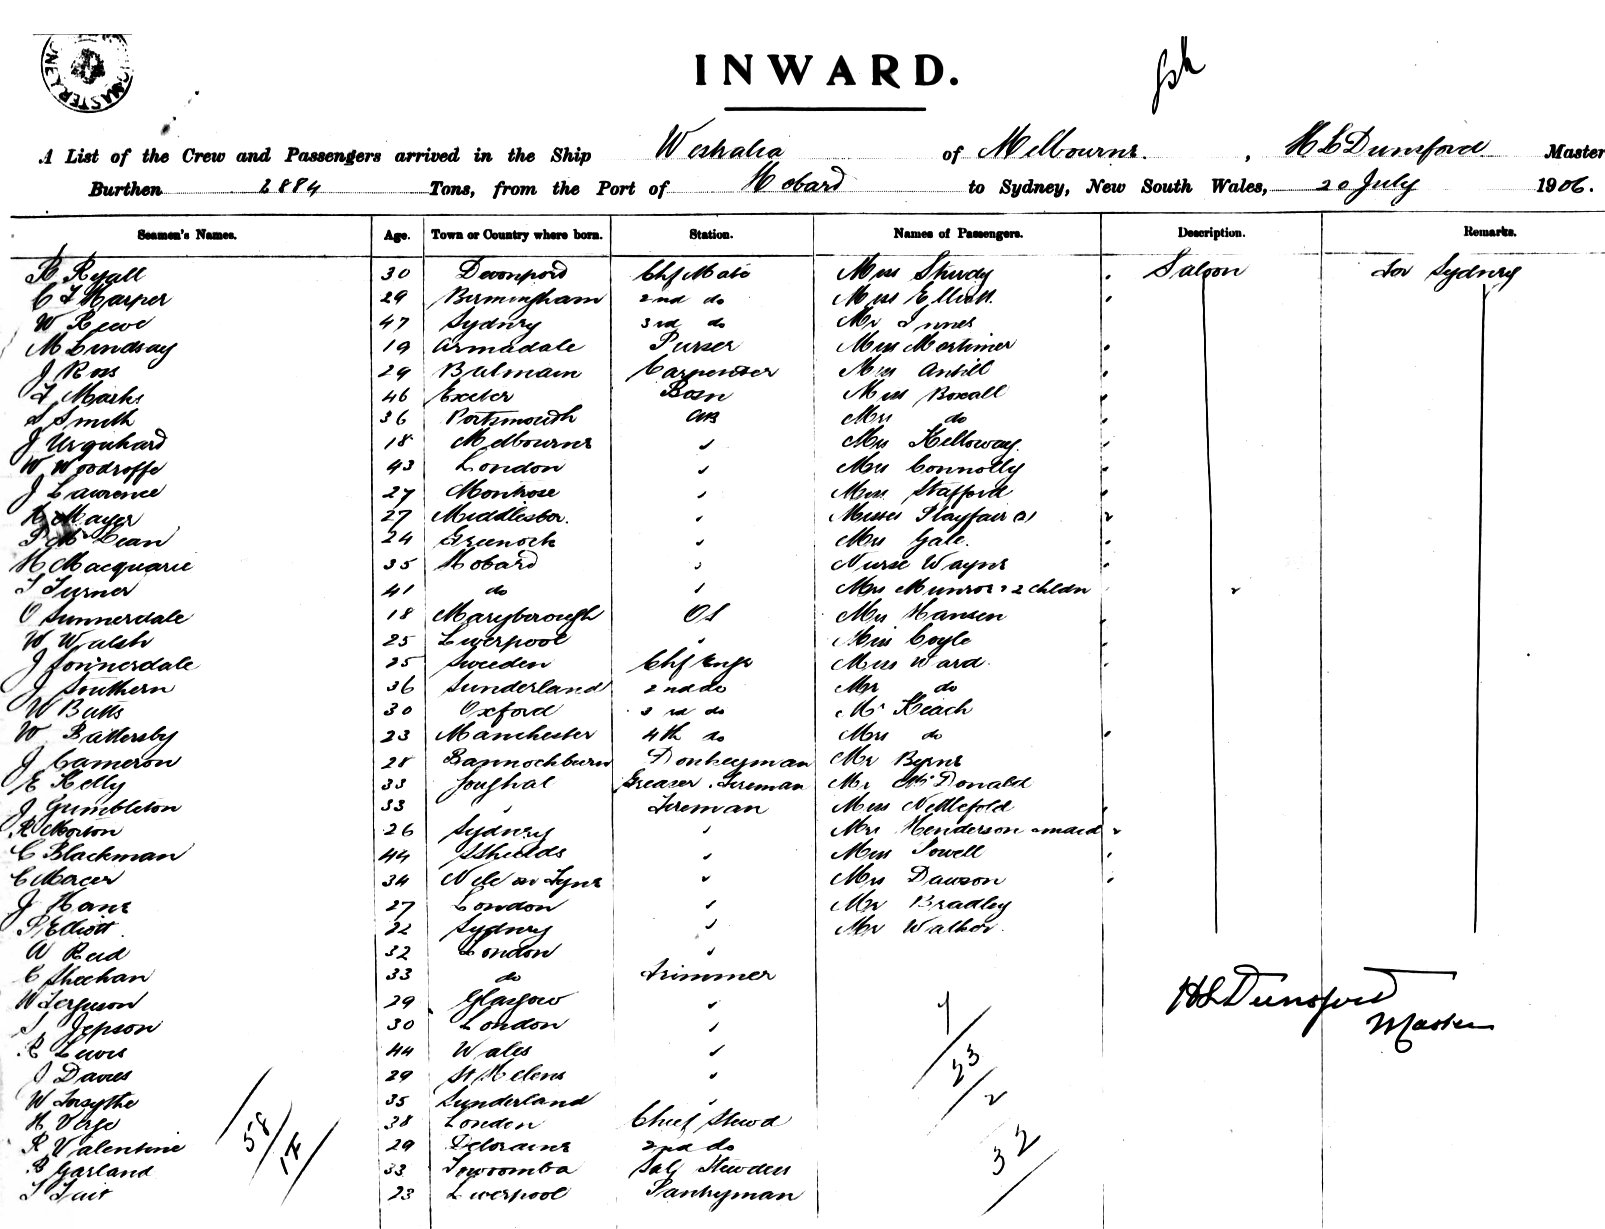 INWARD.
A List of the Crew and Passengers arrived in the Ship Westralia of Melbourne. , H L Dunsford Master
Burthen 2884 Tons, from the Port of Hobard to Sydney, New South Wales, 20 July 1906.
Seamen's Names. Age. Town or Country where born. Station. Names of Passengers. Description. Remarks.
Ryall 30 Devonport Chf Mate Miss Sturdy Saloon For Sydney
C F Harper 29 Birmingham 2nd do Miss Elliott
W Reeve 47 Sydney 3rd do Mr Innes
M Lindsay 19 Armadale Purser Miss Mortimer
J Ross 29 Balmain Carpenter Miss Antill
Marks 46 Exeter Bosn Miss Boxall
S Smith 36 Portsmouth AB Mrs do
J Urquhard 18 Melbourne " Mrs Kelloway
W Woodroffe 43 London " Mrs Connolly
J Lawrence 27 Montrose " Miss Stafford
Mayer 27 Middlesbor. " Misses Playfair (2)
McLean 24 Greenock " Mrs Gale.
H Macquarie 35 Hobard " Nurse Wayne
T Turner 41 do " Mrs Munroe & 2 chldn
O Sunnerdale 18 Maryborough OS Mrs Hansen
W Walsh 25 Liverpool " Miss Coyle
J Sonnerdale 25 Sweeden Chf Engr Miss Ward.
J Southern 36 Sunderland 2nd do Mr do
W Butts 30 Oxford 3rd do Mr Keach
W Battersby 23 Manchester 4th do Mrs do
J Cameron 28 Bannochburn Donkeyman Mr Byrne
E Kelly 33 Youghal Greaser. Fireman Mr McDonald
J Gumbleton 33 " Fireman Miss Nettlefold
R Morton 26 Sydney " Mrs Henderson & maid
C Blackman 44 S Shields " Miss Powell
C Mercer 34 N'Cle on Tyne " Mrs Dawson
J Hone 27 London " Mr Bradley
P Elliott 22 Sydney " Mr Walker.
A Reid 32 London "
C Sheehan 33 do Trimmer
W Ferguson 29 Glasgow "
Jepson 30 London "
R Lewis 44 Wales "
J Davies 29 St Helens "
W Forsythe 35 Sunderland "
H Verge 38 London Chief Stewd
R Valentine 29 Deloraine 2nd do
Garland 33 Towoomba Sal Stewdess
T Tait 23 Liverpool Pantryman
H L Dunsford
Master
23
2
32
58